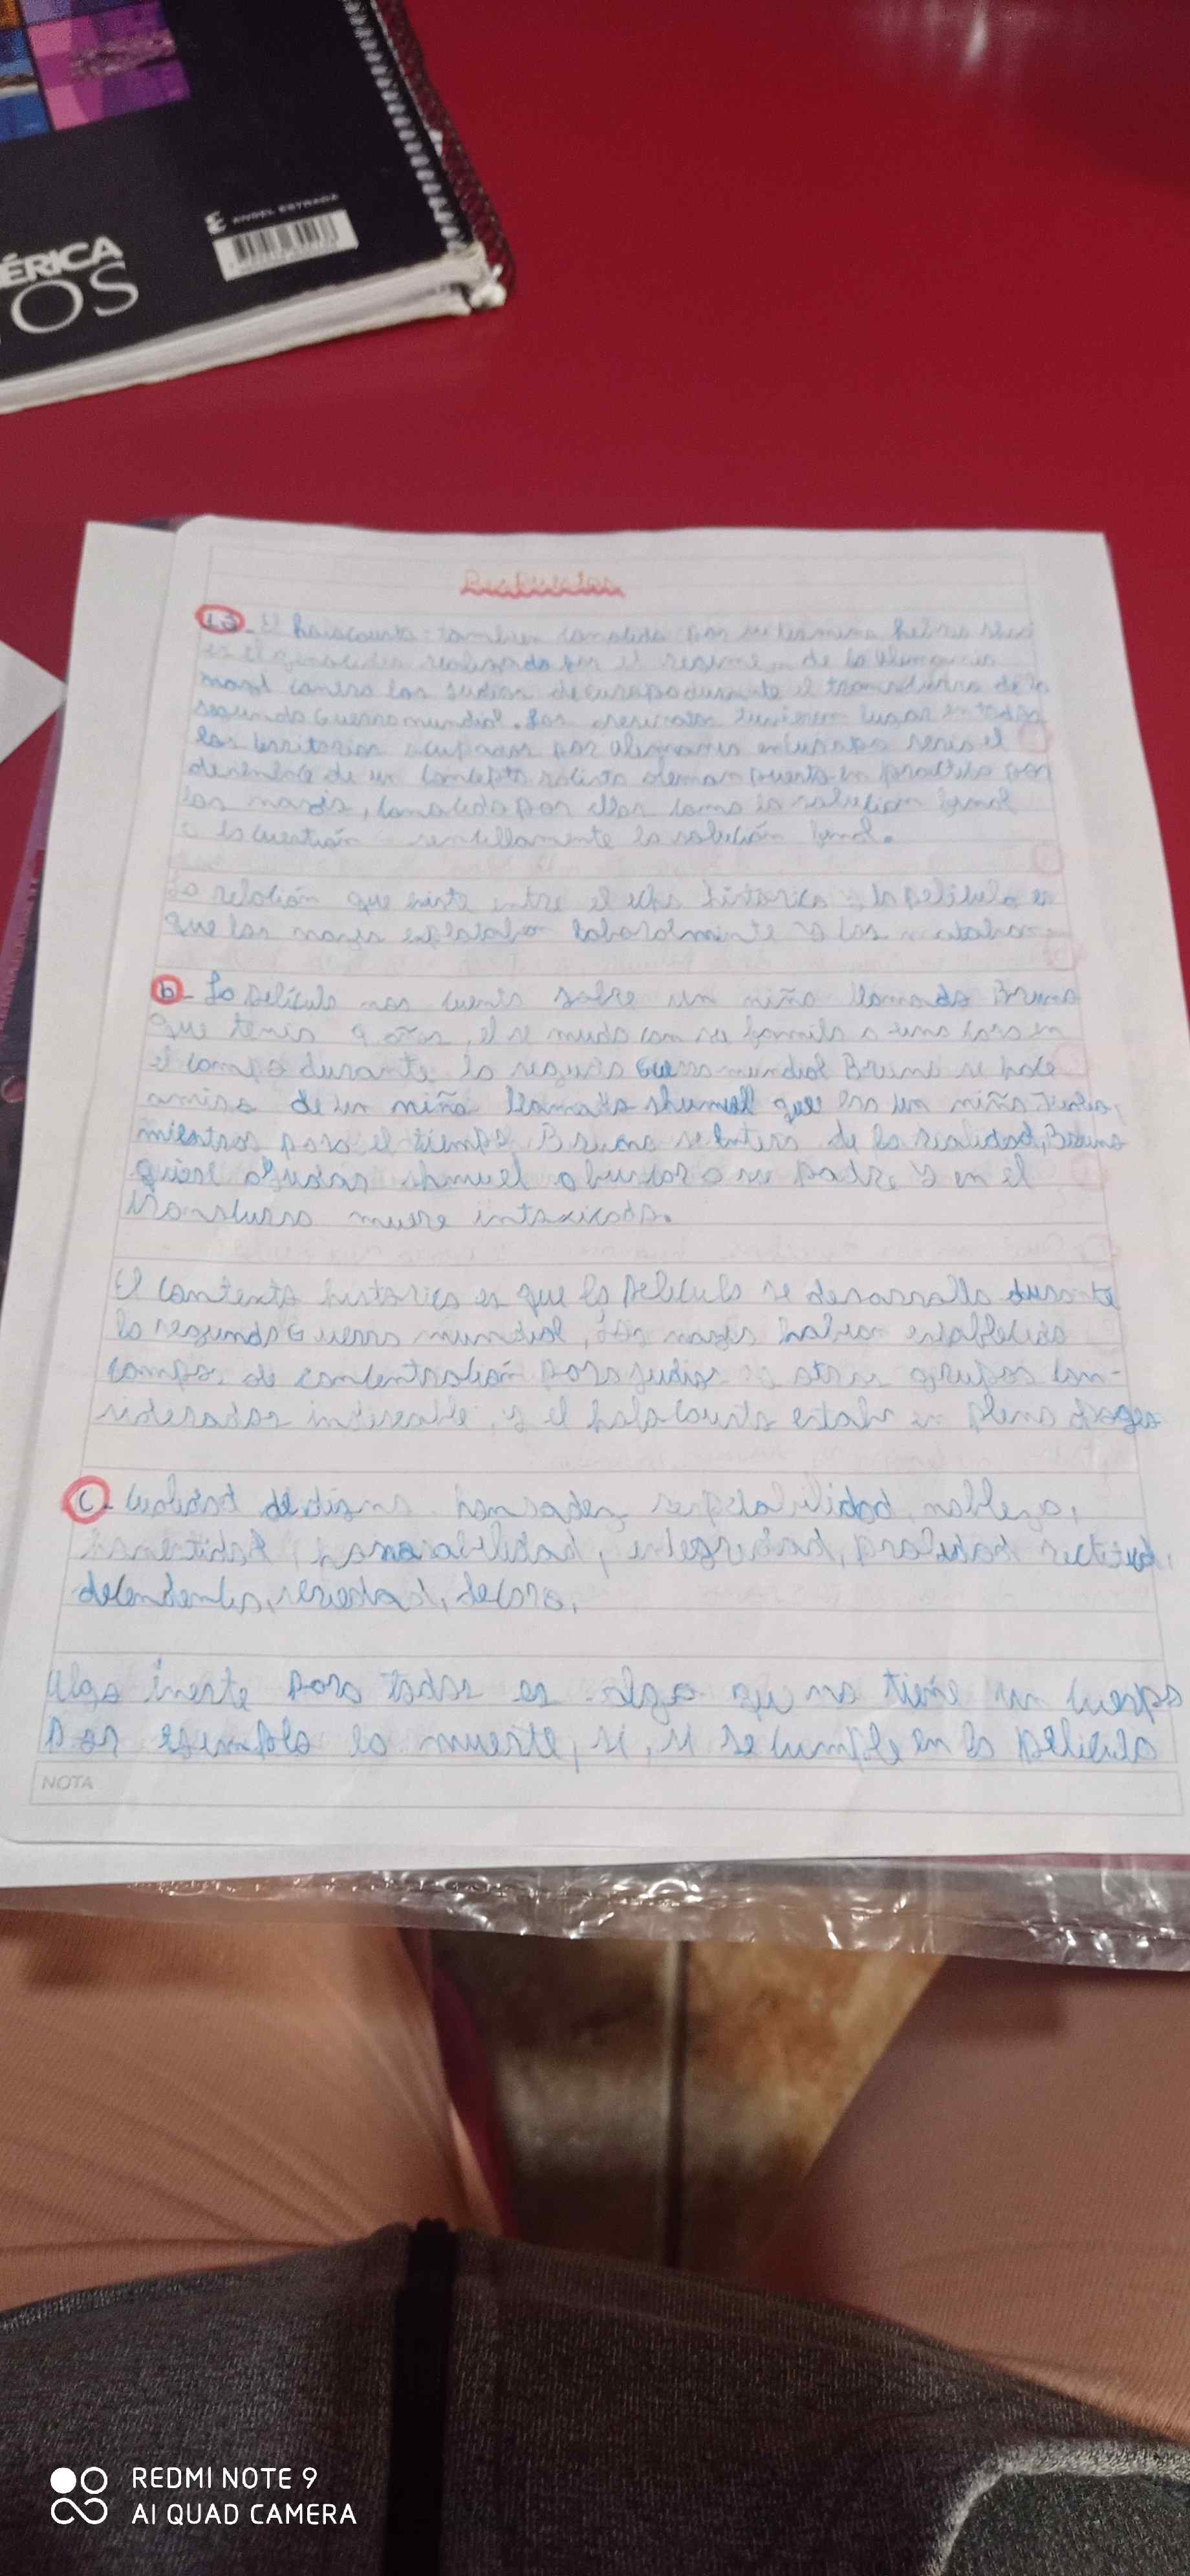 ÉRICA
OS
ANGEL ESTRADA
Respuestas
1a- El holocausto: tambien conocido por su termino hebreo shoá
es el genocidio realizado por el regimen de la alemania
nazi contra los judios de europa durante el transcurso de la
segunda Guerra mundial. Los asesinatos tuvieron lugar en todos
los territorios ocupados por alemanes en europa seria el
desenlace de un concepto alemas puesto en practica por
los nazis, conocida por ellos como la solución final
o la cuestión sencillamente la solución final.
La relación que existe entre el hecho historico y la pelicula es
que los nazis explotaban laboralmente o los mataban
b- La película nos cuenta sobre un niño llamado Bruno
que tenia 9 años, el se muda con su familia a una casa en
el campo durante la segunda Guerra mundial Bruno se hace
amigo de un niño llamado shumuel que era un niño judio,
mientras pasa el tiempo Bruno se entera de la realidad, Bruno
quiere ayudar shmuel a buscar a su padre, y en el
transcurso muere intoxicado.
El contexto historico es que la pelicula se desarrolla durante
la segunda Guerra mundial, los nazis habian establecido
campos de concentración para judios u otros grupos con-
siderados indeseable, y el holocausto estaba en pleno apogeo
c-
Algo inerte para todos es algo que no tiene un cuerpo
por ejemplo la muerte, si, si se cumple en la pelicula
NOTA
REDMI NOTE 9
AI QUAD CAMERA